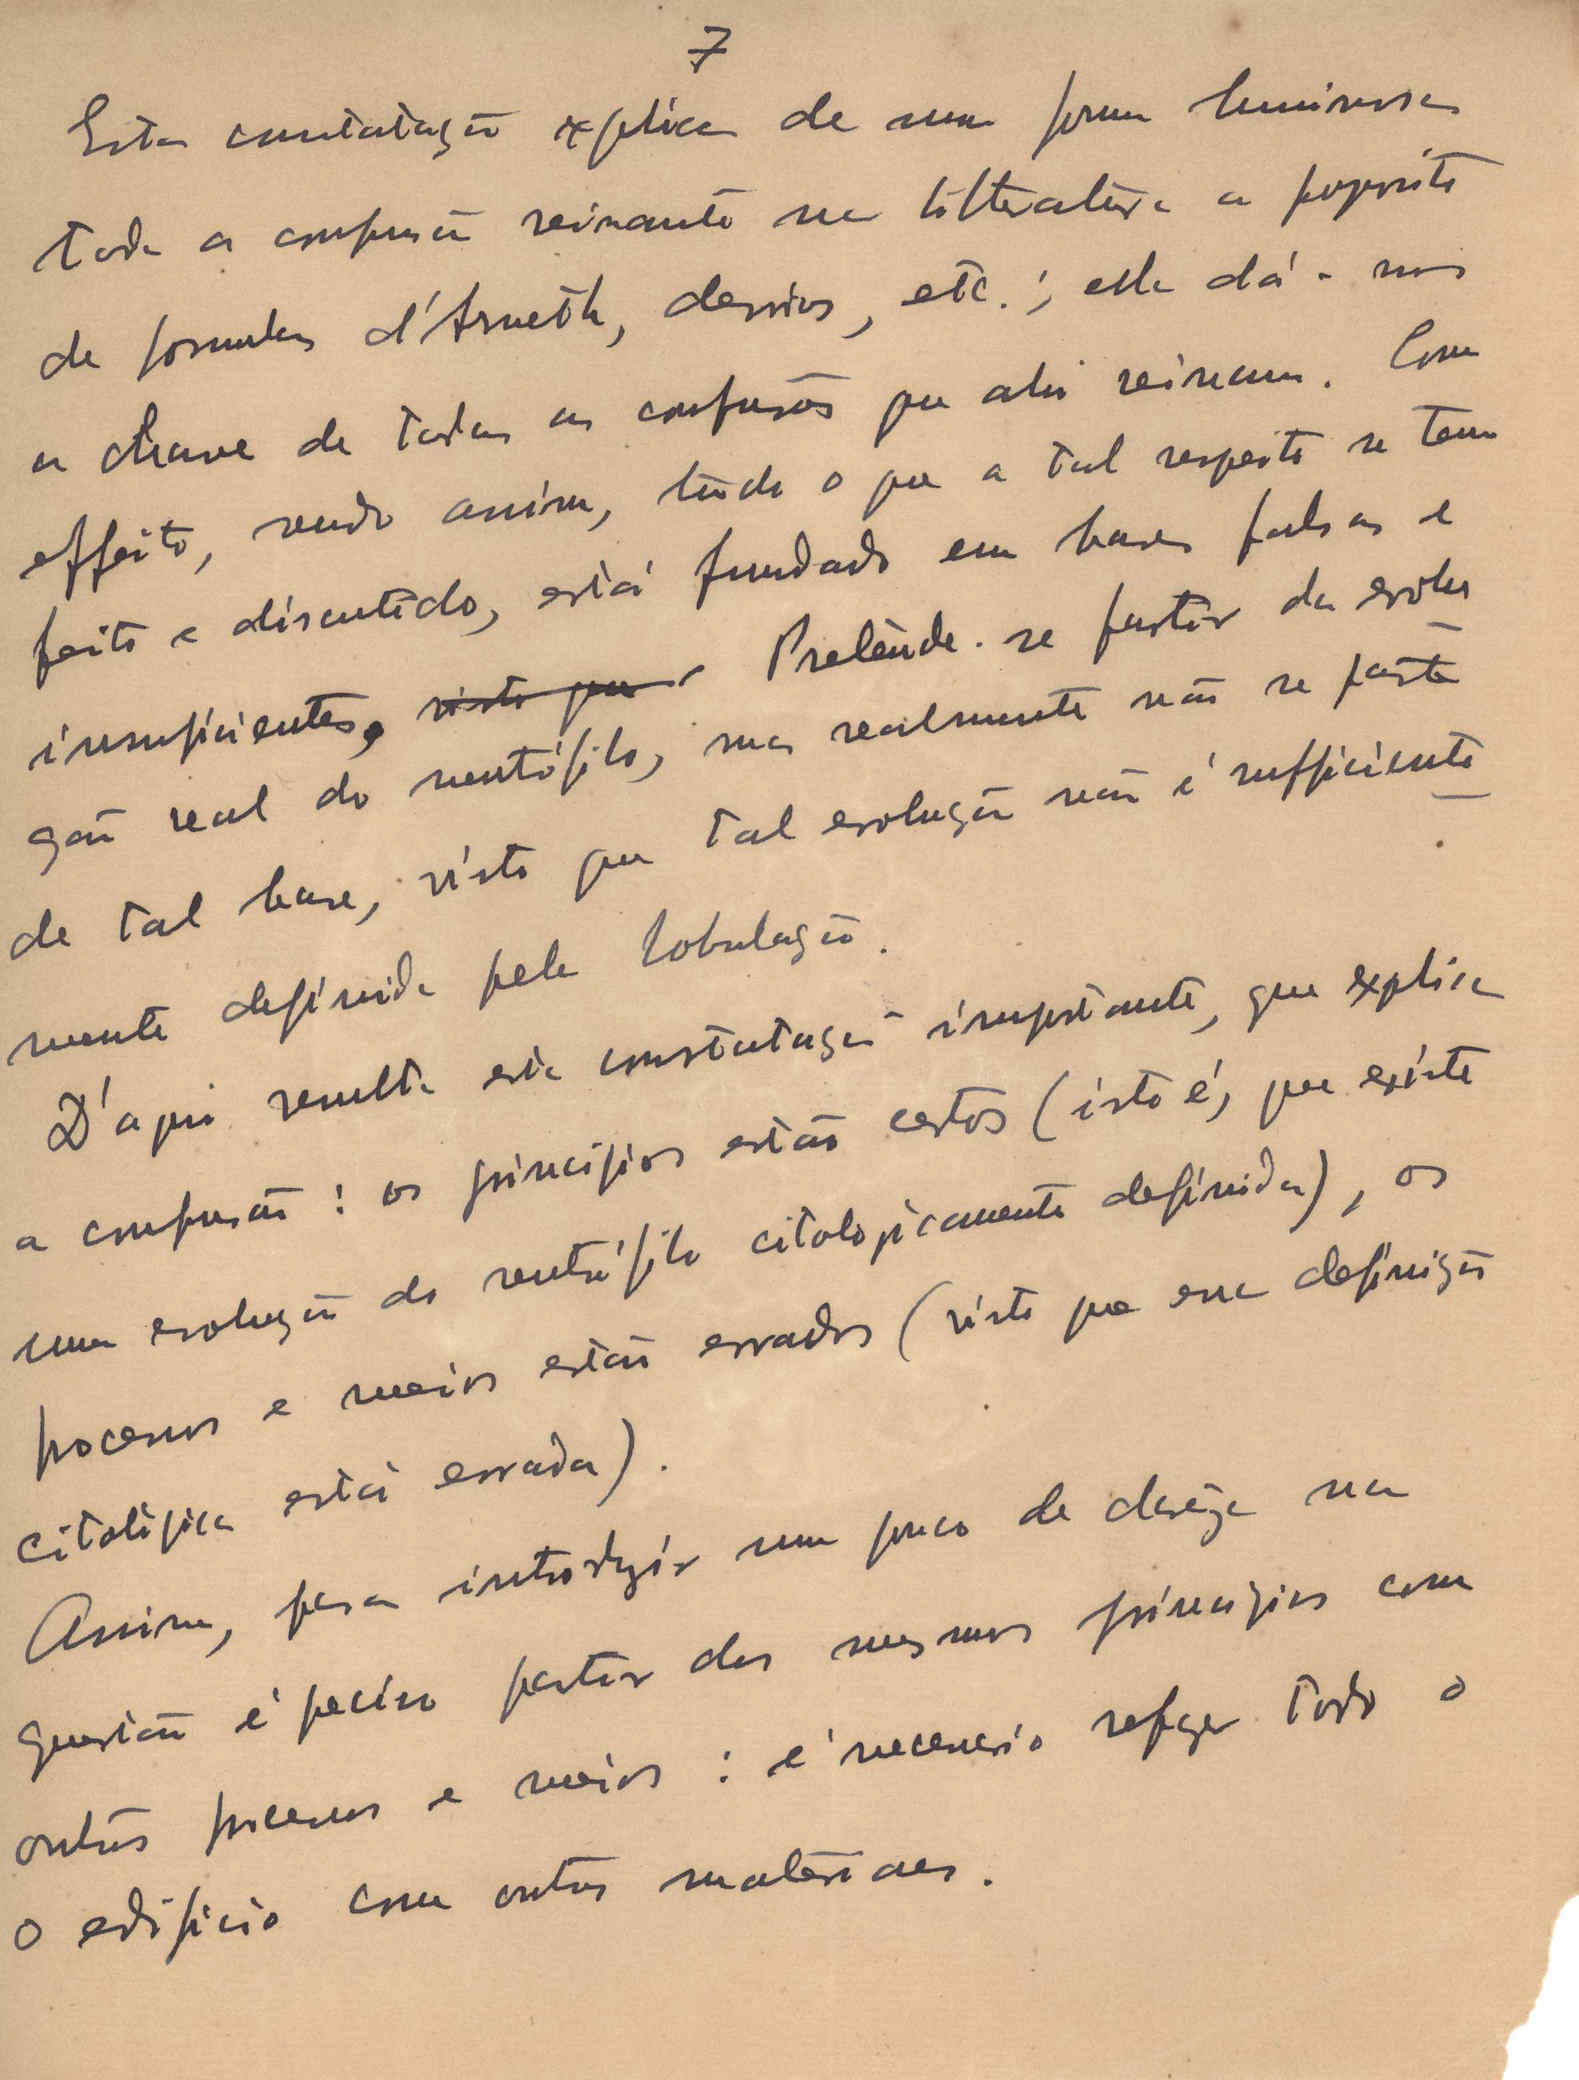 7
Esta constatação explica de uma forma luminosa
toda a confusão reinante na litteratura a proposito
de formulas d'Arneth, desvios, etc.; ella dá-nos
a chave de todas as confusões que ahi reinam. Com
effeito, sendo assim, tudo o que a tal respeito se tem
feito e discutido, está fundado em bases falsas e
insuficientes, visto que. Pretende-se partir da evolu
ção real do neutrófilo, mas realmente não se parte
de tal base, visto que tal evolução não é sufficiente
mente definida pela lobulação.
D'aqui resulta esta constatação importante, que explica
a confusão: os principios estão certos (isto é, que existe
uma evolução do neutrófilo citologicamente definida), os
processos e meios estão errados (visto que essa definição
citológica está errada).
Assim, para introduzir um pouco de clareza na
questão é preciso partir dos mesmos principios com
outros processos e meios: é necessario refazer todo o
o edificio com outros materiaes.